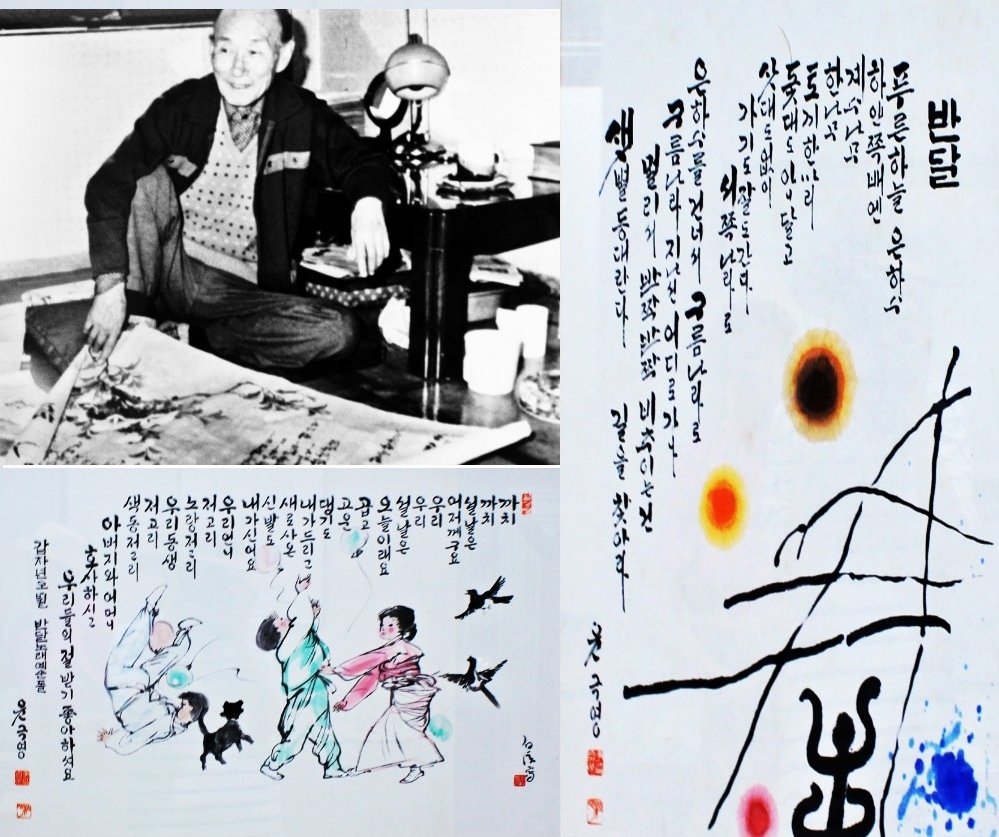 반달
푸른하늘 은하수
하얀쪽배엔
계수나무
한나무
토끼한마리
돛대도아니달고
삿대도없이
가기도잘도간다
서쪽나라로
은하수를 건너서 구름나라로
구름나라 지나선 어디로가나
멀리서 반짝반짝 비추이는건
샛별등대란다 길을 찾아라
윤극영
까치
까치
설날은
어저께구요
우리
우리
설날은
오늘이래요
곱고
고운
댕기도
내가드리고
새로사온
신발도
내가신어요
우리언니
저고리
노랑저고리
우리동생
저고리
색동저고리
아버지와 어머니
호사하시고
우리들의 절 받기 좋아하셔요
갑자년오월 반달노래예순돌
윤극영